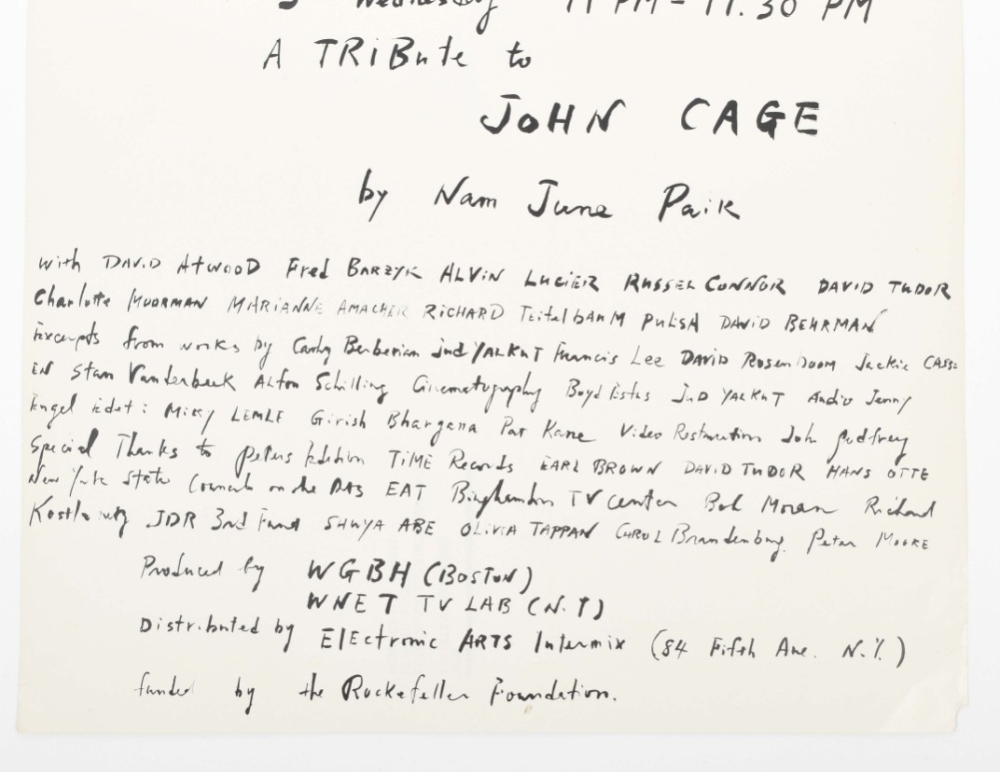 Wednesday 11 PM - 11.30 PM
A TRiBute to
JOHN CAGE
by Nam June Paik
with DAViD AtwooD Fred BARZYK ALViN LuciER RUSSEL CONNOR DAVID TUDOR
Charlotte MOORMAN MARIANNE AMACHER RiCHARD TeitelbAUM PULSA DAVID BEHRMAN
Excerpts from works by Cathy Berberian Jud YALKUT Francis Lee DAViD Rosenboom Jackie CASS-
EN Stan Vanderbeek Alfon Schilling Cinematography Boyd Estus JUD YALKUT Audio Jenny
Engel Edit: Micky LEMLE Girish Bhargava Pat Kane Video Restoration Joh Godfrey
Special Thanks to Peters Edition TIME Records EARL BROWN DAVID TUDOR HANS OTTE
New York State Council on the EAT Binghamton TV center Bob Moran Richard
Kostlanetz JDR 3rd Fund SHUYA ABE OLIVIA TAPPAN CAROL Brandenburg Peter MOORE
Produced by WGBH (BOSTON)
WNET TV LAB (N.Y)
Distributed by ElEctronic ARTS Intermix (84 Fifth Ave. N.Y.)
funded by the Rockefeller Foundation.